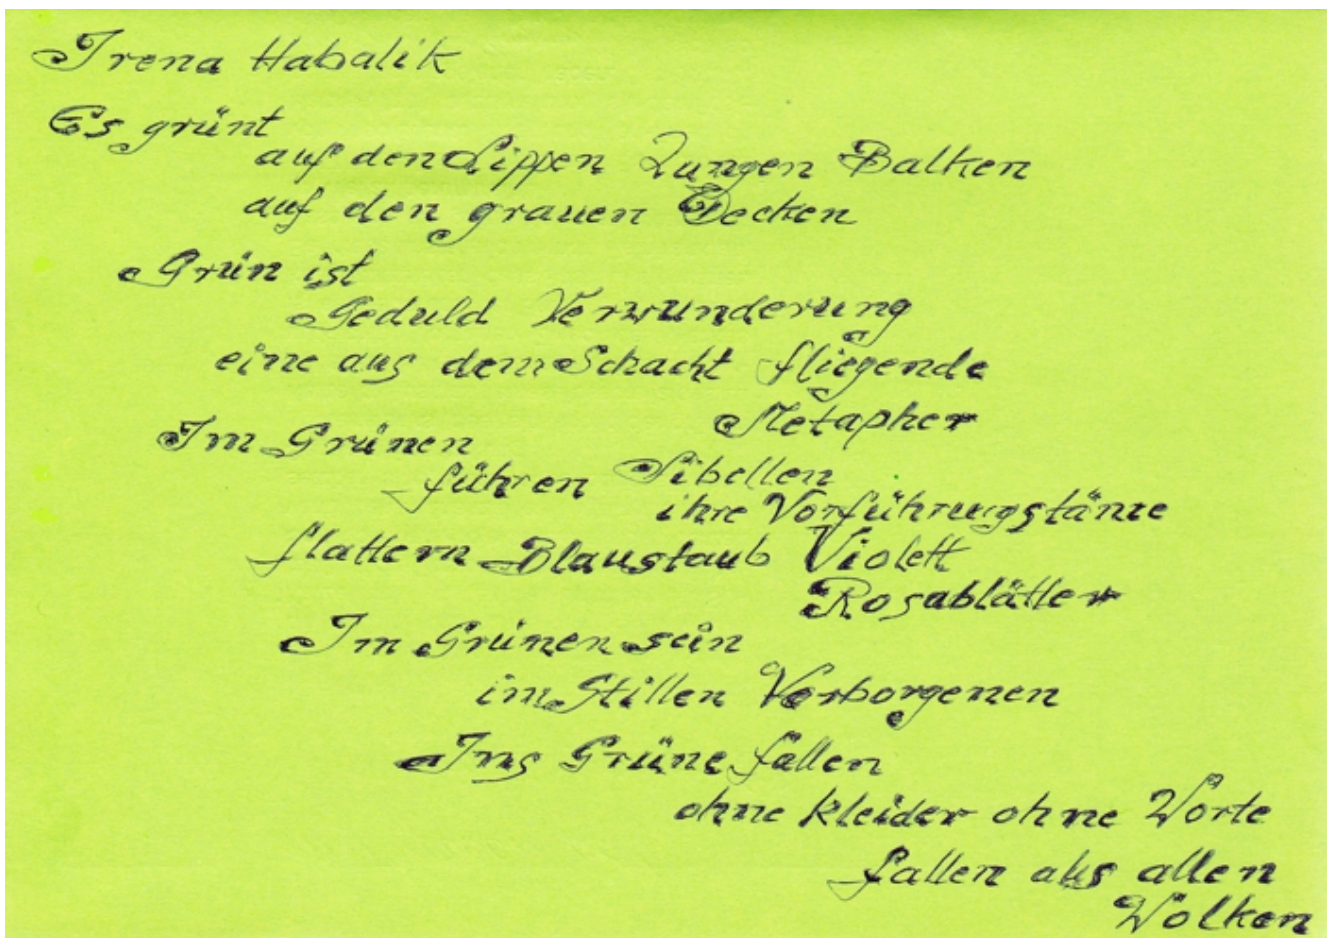 Irena Habalik
Es grünt
auf den Lippen Zungen Balken
auf den grauen Decken
Grün ist
Geduld Verwunderung
eine aus dem Schacht fliegende
Metapher
Im Grünen
führen Libellen
ihre Vorführungstänze
flattern Blaustaub Violett
Rosablätter
Im Grünen sein
im Stillen Verborgenen
Ins Grüne fallen
ohne Kleider ohne Worte
fallen aus allen
Wolken